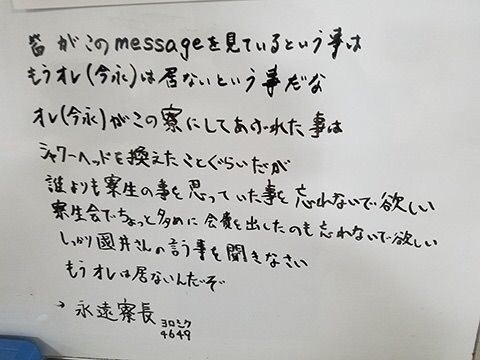 皆がこのmessageを見ているという事は
もうオレ(今永)は居ないという事だな
オレ(今永)がこの寮にしてあげれた事は
シャワーヘッドを換えたことぐらいだが
誰よりも寮生の事を思っていた事を忘れないで欲しい
寮生会でちょっと多めに会費を出したのも忘れないで欲しい
しっかり國井さんの言う事を聞きなさい
もうオレは居ないんだぞ
→永遠寮長 ヨロシク
4649